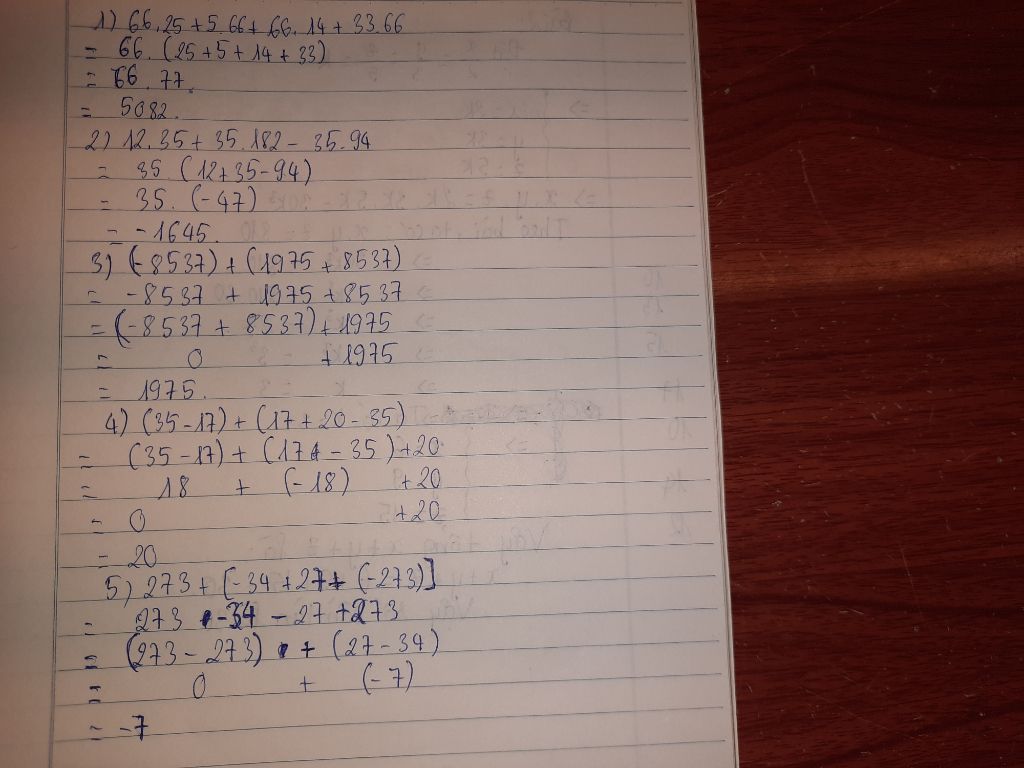 1) 66.25 + 5.66 + 66.14 + 33.66
= 66.(25+5+14+33)
= 66.77.
= 5082.
2) 12.35 + 35.182 - 35.94
= 35.(12+35-94)
= 35.(-47)
= -1645.
3) (-8537) + (1975 + 8537)
= -8537 + 1975 + 8537
= (-8537 + 8537) + 1975
= 0 + 1975
= 1975.
4) (35-17) + (17 + 20 - 35)
= (35-17) + (17 - 35) + 20
= 18 + (-18) + 20
= 0 + 20
= 20
5) 273 + [-34 + 27 + (-273)]
= 273 -34 - 27 + 273
= (273 - 273) + (27 - 34)
= 0 + (-7)
= -7